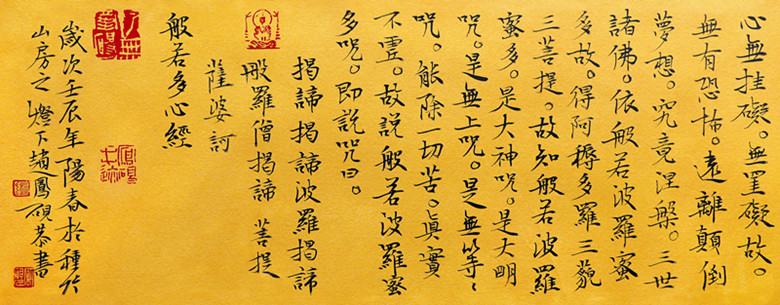 心無挂礙。無罣礙故。
無有恐怖。遠離顛倒
夢想。究竟涅槃。三世
諸佛。依般若波羅蜜
多故。得阿耨多羅三藐
三菩提。故知般若波羅
蜜多。是大神咒。是大明
咒。是無上咒。是無等々
咒。能除一切苦。真實
不虛。故說般若波羅蜜
多咒。即說咒曰。
揭諦揭諦波羅揭諦
般羅僧揭諦 菩提
薩婆訶
般若多心經
歲次壬辰年陽春於種竹
山房之燈下趙鳳硯恭書